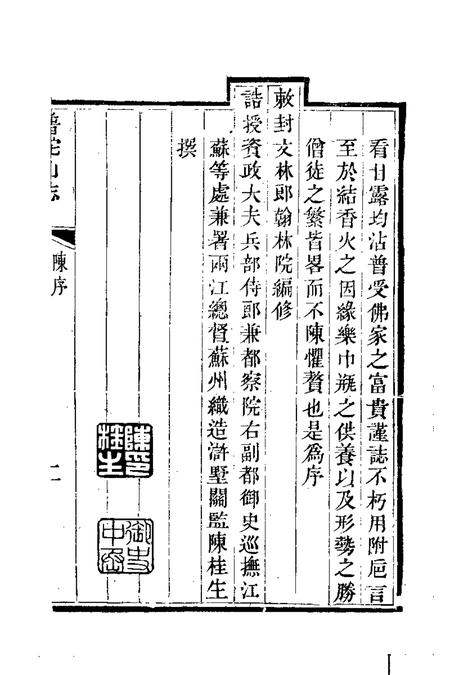 看甘露均沾普受佛家之富貴謹誌不朽用附卮言
至於結香火之因緣樂巾瓶之供養以及形勢之勝
僧徒之繁皆畧而不陳懼贅也是爲序
敕封文林郎翰林院編修
誥授資政大夫兵部侍郎兼都察院右副都御史巡撫江
蘇等處兼署兩江總督蘇州織造滸墅關監陳桂生
撰
陳印桂生
御史中丞
普陀山志
陳序
二